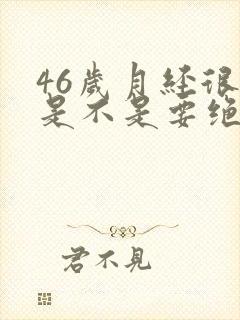 46歲月經很
是不是要绝
君不見